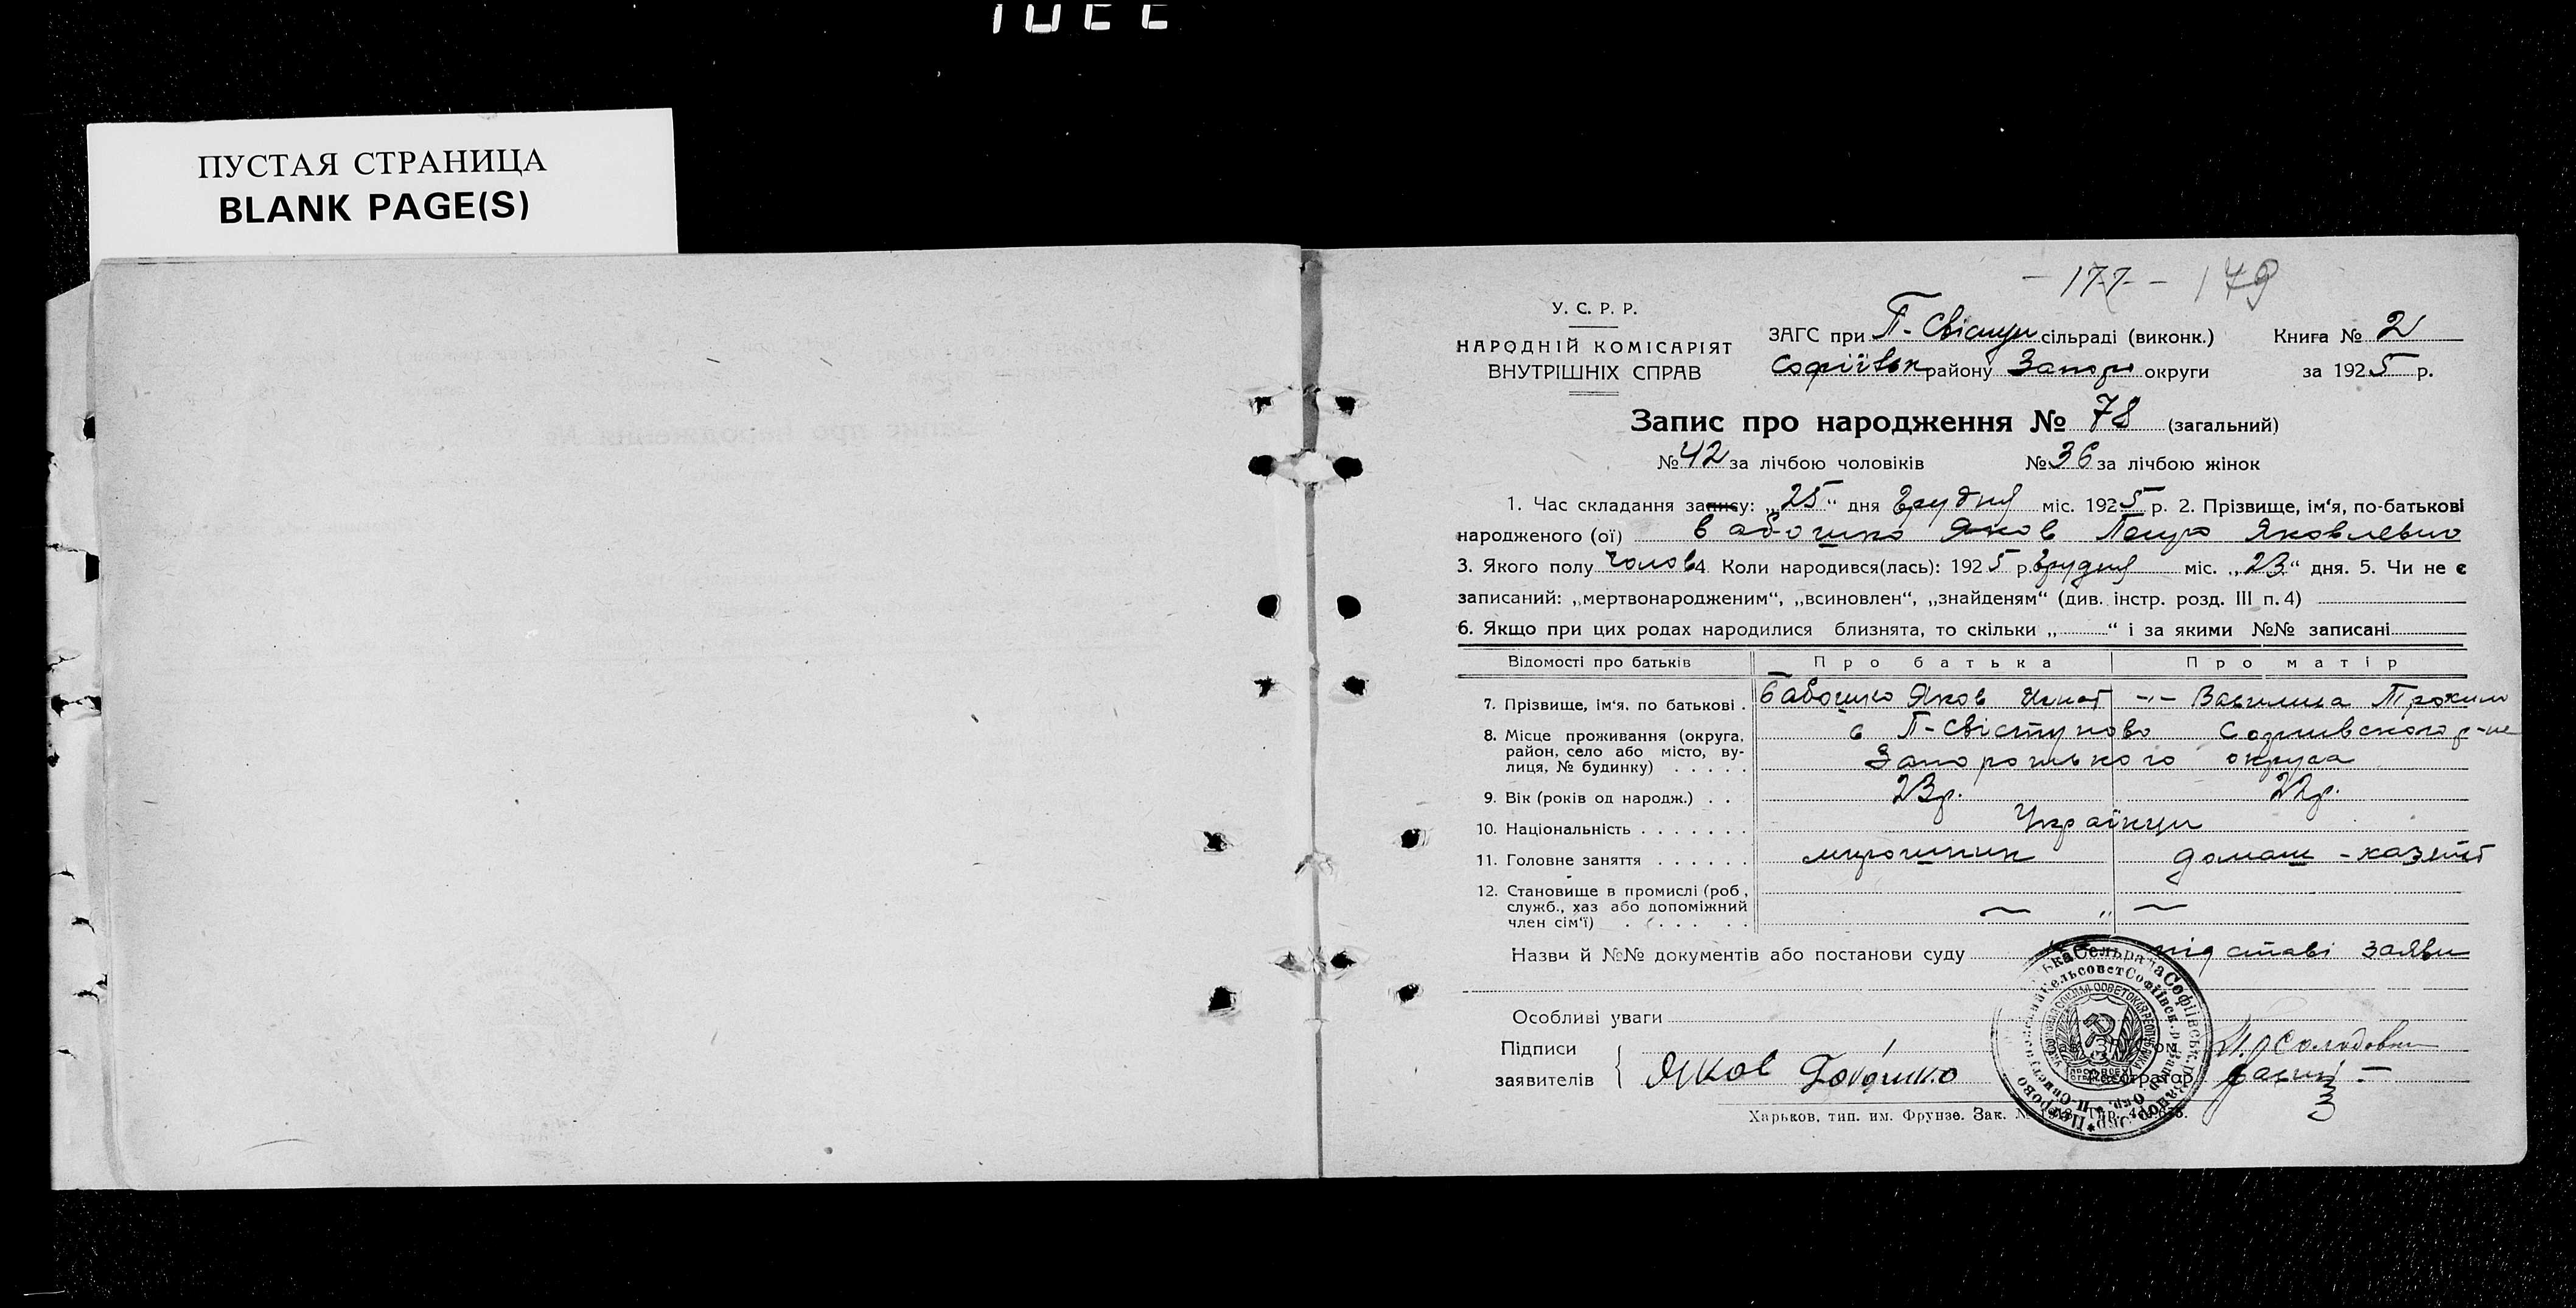 ПУСТАЯ СТРАНИЦА
BLANK PAGE(S)
- 177 - 179
У. С. Р. Р.
НАРОДНІЙ КОМІСАРІЯТ
ВНУТРІШНІХ СПРАВ
ЗАГС при П-Свісту сільраді (виконк.) Книга № 2
Софіївск району Запор округи за 1925 р.
Запис про народження № 78 (загальний)
№ 42 за лічбою чоловіків № 36 за лічбою жінок
1. Час складання запису: „25“ дня Грудня міс. 1925 р. 2. Прізвище, ім‘я, по-батькові
народженого (ої) Бабошко Яков Петро Яковлевич
3. Якого полу Чолов 4. Коли народився(лась): 1925 р. Грудня міс. „23“ дня. 5. Чи не є
записаний: „мертвонародженим“, „всиновлен“, „знайденям“ (див. інстр. розд. III п. 4)
6. Якщо при цих родах народилися близнята, то скільки „ “ і за якими №№ записані
Відомості про батьків Про батька Про матір
7. Прізвище, ім‘я, по батькові . Бабошко Яков Игнат -"- Василиса Трохим
8. Місце проживання (округа, район, село або місто, вулиця, № будинку) . . . . . с П-Свістуново Софиивского р-не
Запорожького округа
9. Вік (років од народж.) . . 23р. 22р.
10. Національність . . . . . . . Українци
11. Головне заняття . . . . . . мирошник домаш - хазяйст
12. Становище в промислі (роб.,
служб., хаз або допоміжний
член сім‘ї) . . . . . . . — " —
Назви й №№ документів або постанови суду підставі заяви
Особливі уваги
Підписи
заявителів { Яков Бабошко
Реєстратор
Харьков, тип. им. Фрунзе. Зак. №